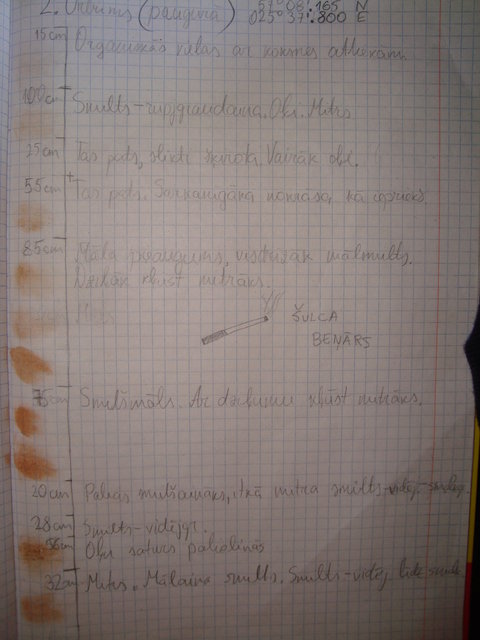 2. Urbums (paugurā) 57°06.165 N
025°37.800 E
15cm Organiskās vielas ar koksnes atliekām.
100cm Smilts-rupjgraudaina. Oļi. Mitrs
25cm Tas pats, slikti šķirota. Vairāk oļi.
55cm Tas pats. Sarkanīgāka nokrāsa, kā iepriekš
85cm Māla pieaugums, visdrīzāk mālsmilts.
kļūst mitrāks.
Mitrs
ŠULCA
BEŅĀRS
75cm Smilšmāls. Ar dziļumu kļūst mitrāks.
20cm Paliek smilšaināks, mitra smilts-vidēji
28cm Smilts-vidējgr.
56cm Oļu saturs palielinās
32cm Mitrs. Mālaina smilts. Smilts-vidēj